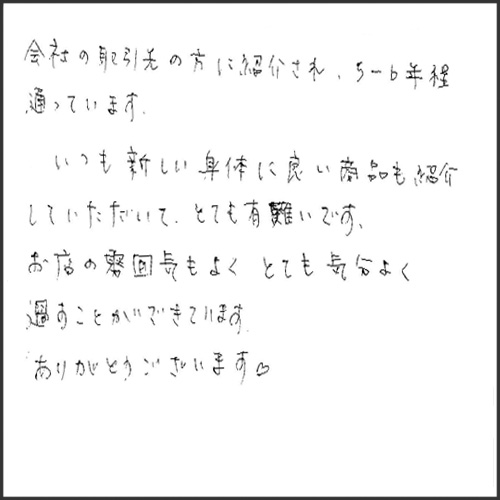 会社の取引先の方に紹介され、5〜6年程
通っています。
いつも新しい身体に良い商品も紹介
していただいて、とても有難いです。
お店の雰囲気もよく とても気分よく
過すことができています。
ありがとうございます♡